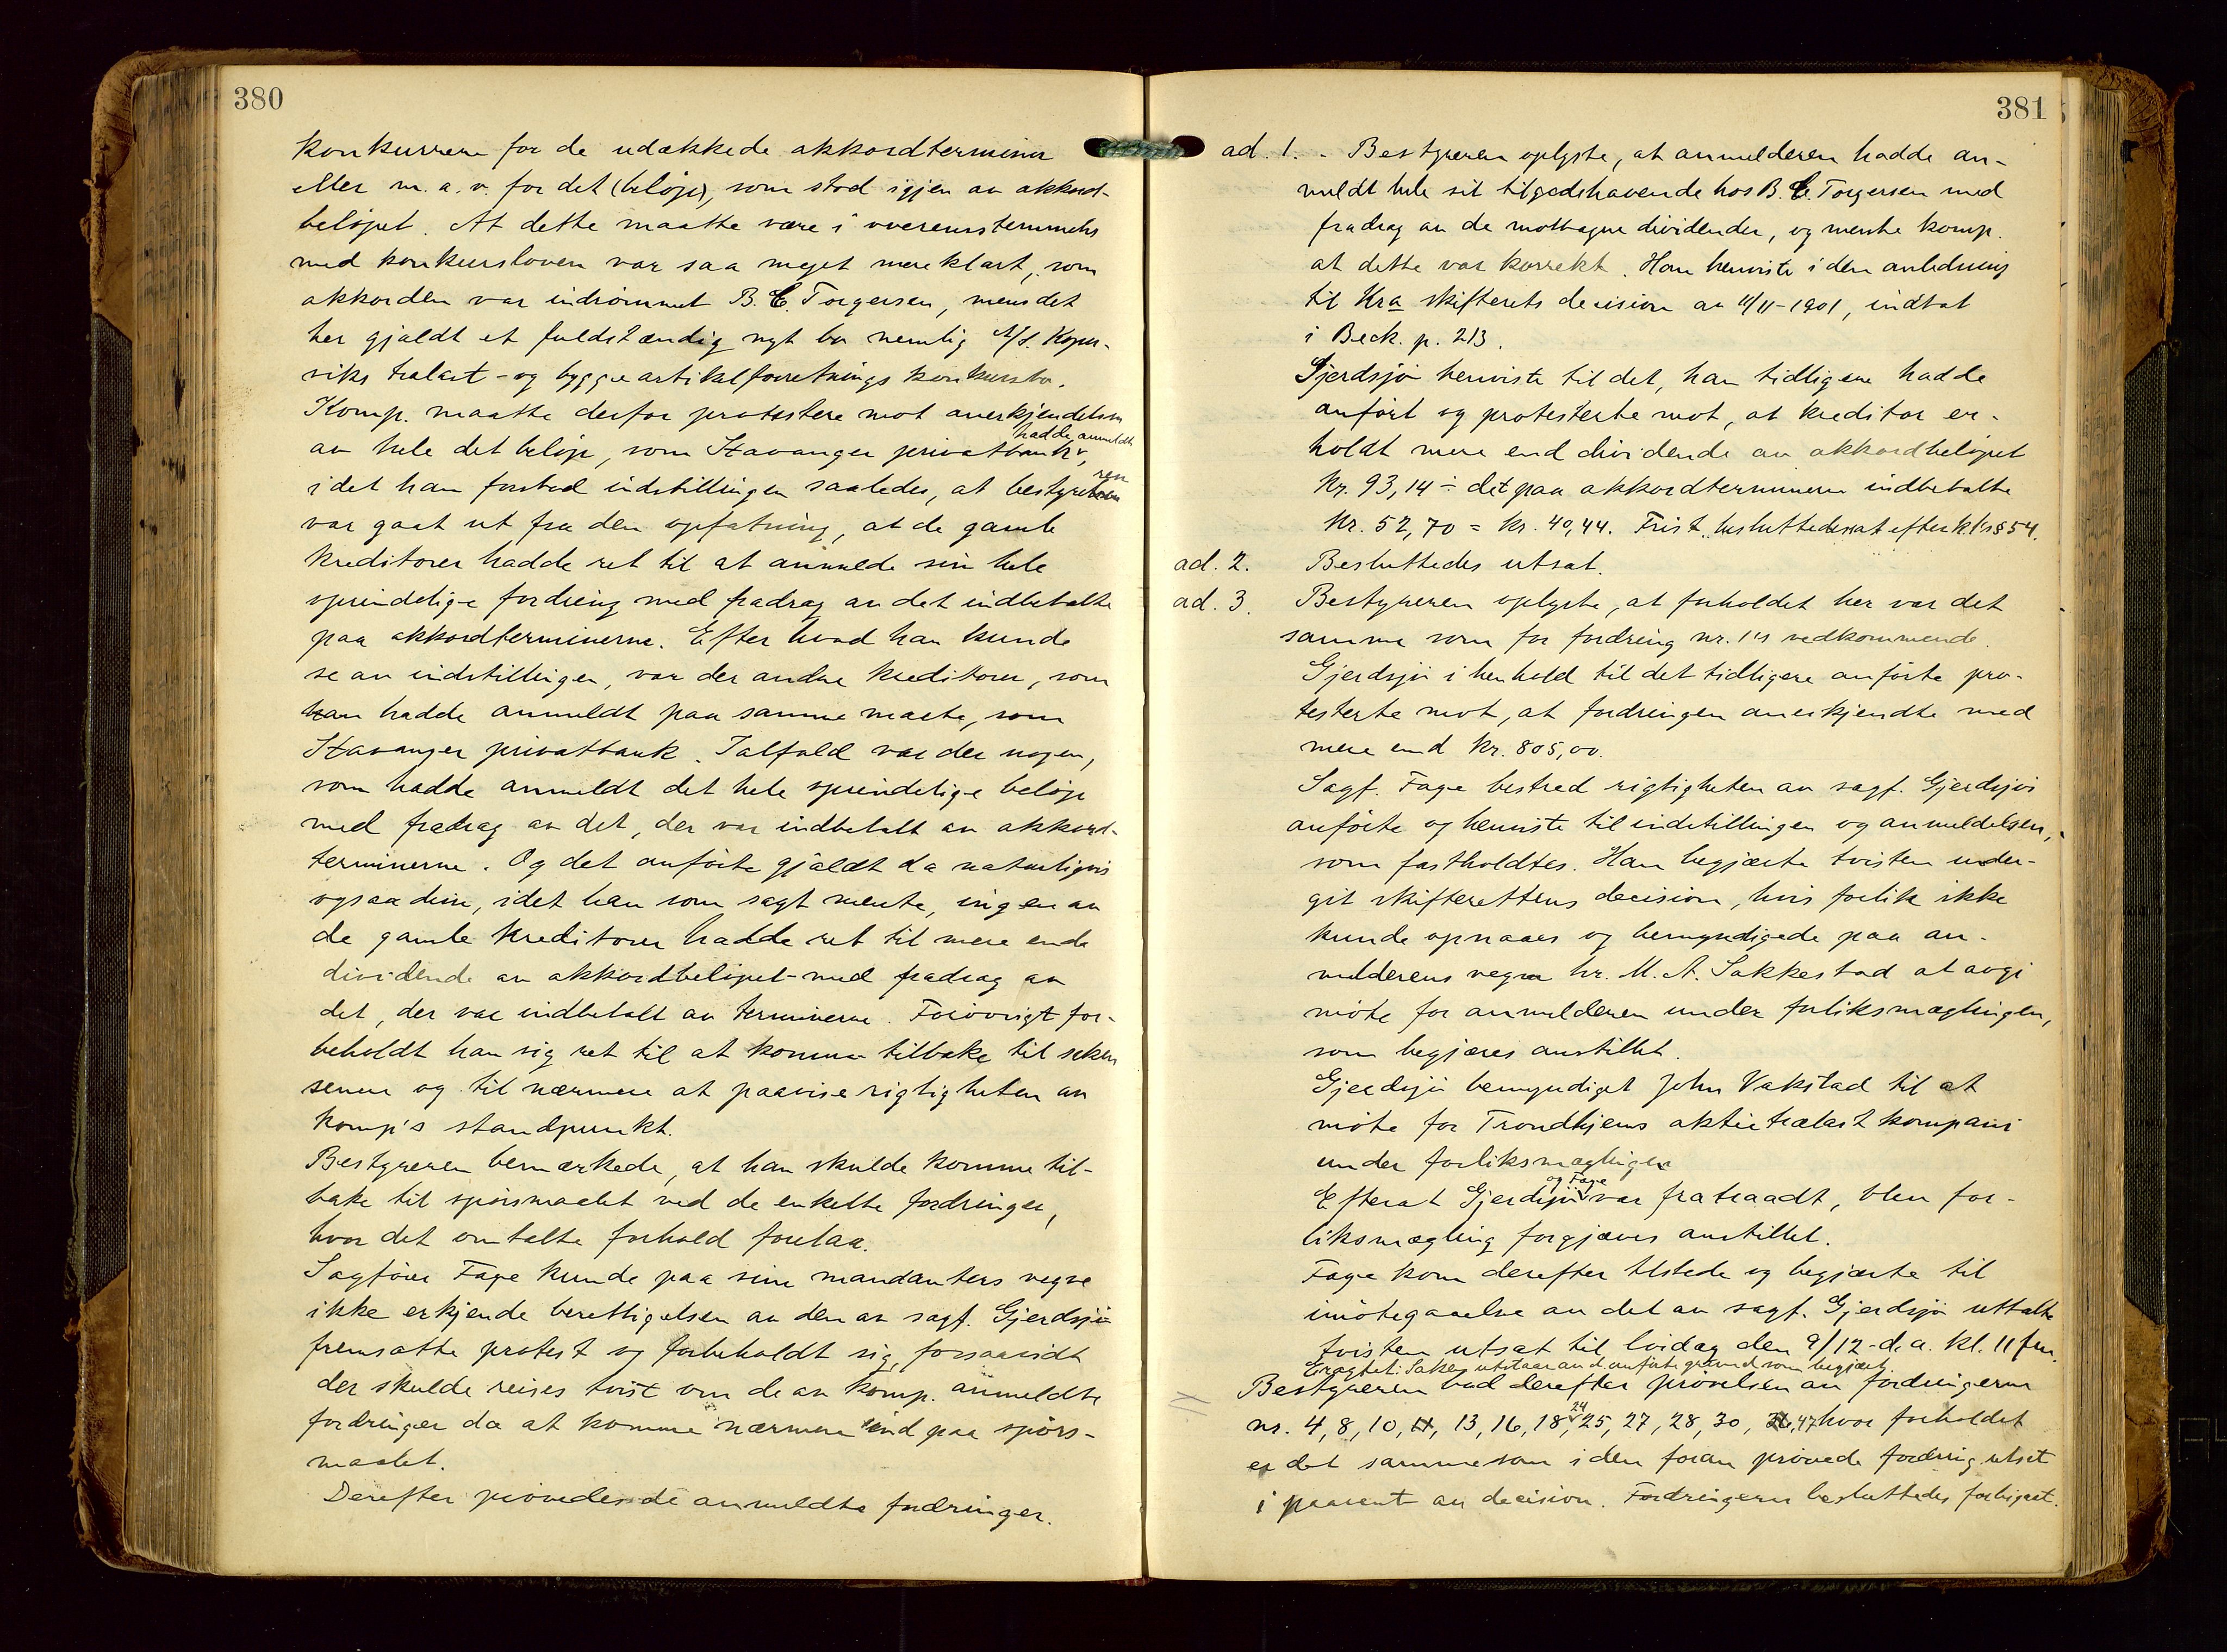 380
konkurrere for de udækkede akkordterminer
eller m. a. o. for det (beløp), som stod igjen av akkord-
beløpet. At dette maatte være i overensstemmelse
med konkursloven var saa meget mere klart, som
akkorden var indrømmet B. C. Torgersen, mens det
her gjaldt et fuldstændig nyt bo nemlig A/S. Koper-
viks trælast- og byggeartikelforretnings konkursbo.
Komp. maatte derfor protestere mot anerkjendelsen
av hele det beløp, som Stavanger privatbank hadde anmeldt,
idet han forstod indstillingen saaledes, at bestyreren
var gaat ut fra den opfatning, at de gamle
kreditorer hadde ret til at anmelde sin hele
oprindelige fordring med fradrag av det indbetalte
paa akkordterminerne. Efter hvad han kunde
se av indstillingen, var der andre kreditorer, som
hadde anmeldt paa samme maate, som
Stavanger privatbank. Ialfald var der nogen,
som hadde anmeldt det hele oprindelige beløp
med fradrag av det, der var indbetalt av akkord-
terminerne. Og det anførte gjaldt da naturligvis
ogsaa disse, idet han som sagt mente, ingen av
de gamle kreditorer hadde ret til mere end
dividende av akkordbeløpet med fradrag av
det, der var indbetalt av terminerne. Forøvrigt for-
beholdt han sig ret til at komme tilbake til saken
senere og til nærmere at paavise rigtigheten av
Komp's standpunkt.
Bestyreren bemærkede, at han skulde komme til-
bake til spørsmaalet ved de enkelte fordringer,
hvor det omtalte forhold forelaa.
Sagfører Fage kunde paa sine mandanters vegne
ikke erkjende berettigelsen av den av sagf. Gjerdsjø
fremsatte protest og forbeholdt sig forsaavidt
der skulde reises tvist om de av komp. anmeldte
fordringer da at komme nærmere ind paa spørs-
maalet.
Derefter prøvedes de anmeldte fordringer.
381
ad. 1. - Bestyreren oplyste, at anmelderen hadde an-
meldt hele sit tilgodehavende hos B. C. Torgersen med
fradrag av de mottagne dividender, og mente komp.
at dette var korrekt. Han henviste i den anledning
til Kra skifterets decision av 11/11-1901, indtat
i Beck. p. 213.
Gjerdsjø henviste til det, han tidligere hadde
anført og protesterte mot, at kreditor er-
holdt mere end dividende av akkordbeløpet
kr. 93,14 ÷ det paa akkordterminerne indbetalte
kr. 52,70 = kr. 40,44. Tvist. besluttedes utsat efter k.l's § 54.
ad. 2. Besluttedes utsat.
ad. 3. Bestyreren oplyste, at forholdet her var det
samme som for fordring nr. 1's vedkommende.
Gjerdsjø i henhold til det tidligere anførte pro-
testerte mot, at fordringen anerkjendtes med
mere end kr. 805,00.
Sagf. Fage bestred rigtigheten av sagf. Gjerdsjøs
anførte og henviste til indstillingen og anmeldelsen,
som fastholdtes. Han begjærte tvisten under-
git skifterettens decision, hvis forlik ikke
kunde opnaaes og bemyndigede paa an-
melderens vegne hr. M. A. Sakkestad at avgi
møte for anmelderen under forliksmæglingen,
som begjæres anstillet.
Gjerdsjø bemyndiget John Vakstad til at
møte for Trondhjems aktietrælastkompani
under forliksmæglingen
Efterat Gjerdsjø og Fage var fratraadt, blev for-
liksmægling forgjæves anstillet.
Fage kom derefter tilstede og begjærte til
imøtegaaelse av det av sagf. Gjerdsjø uttalte
tvisten utsat til lørdag den 9/12-d.a. kl. 11 fm.
Eragtet: Saken utstaar av d. anførte grund som begjært.
Bestyreren bad derefter prøvelsen av fordringerne
nr. 4, 8, 10, 11, 13, 16, 18, 24, 25, 27, 28, 30, 47 hvor forholdet
er det samme som i den foran prøvede fordring utsat
i paavent av decision. Fordringerne besluttedes forbigaat.